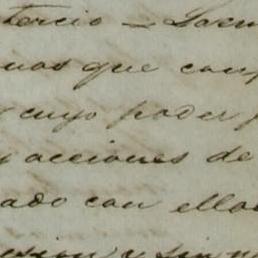 tercio — Docu
nos que com
y cuyo poder
y acciones de
ado con ellos